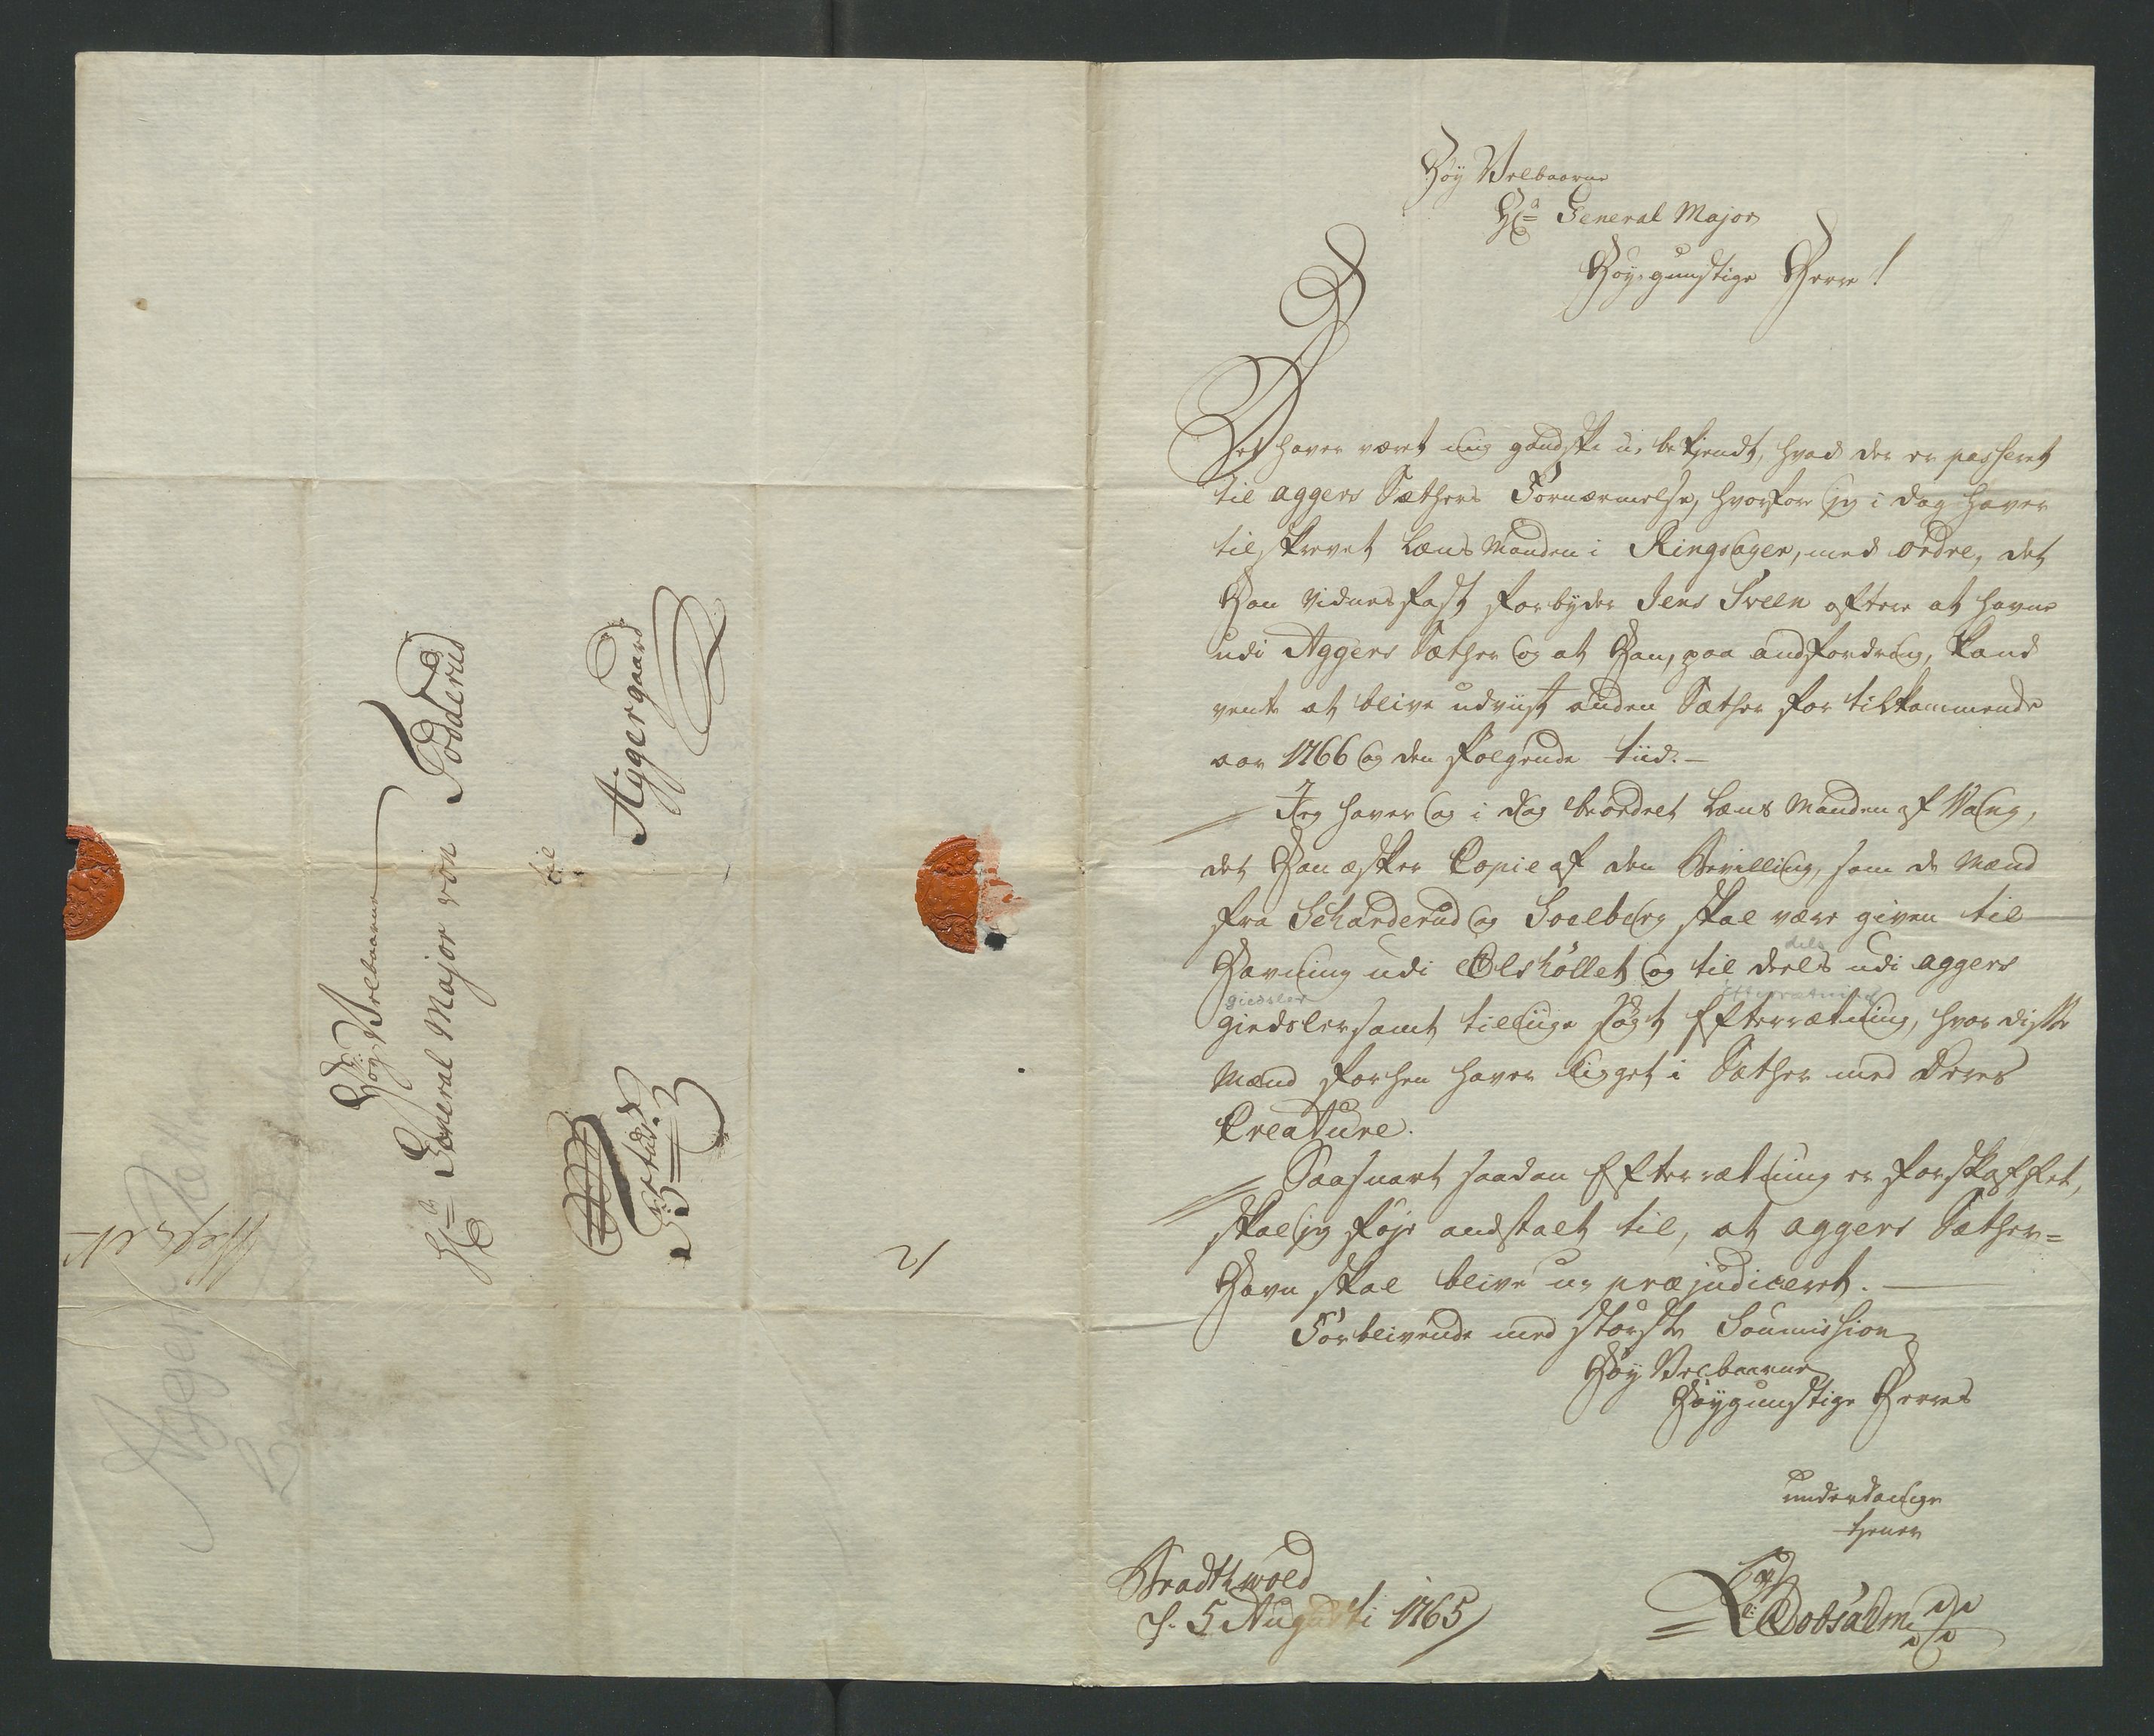 Høy Velbaarne
Hr. General Major
Høygunstige Herre!
Det haver været mig gandske u-bekiendt, hvad der er passeret
til aggers Sæthers Fornærmelse, hvorfore jeg i dag haver
tilskrevet Lænsmanden i Ringsager, med ordre, det
Han vidnesfast forbyder Jens Sveen oftere at havne
udi Aggers Sæther og at Han, paa andfordring, kand
vente at blive udviist anden Sæther for tilkommende
aar 1766 og den følgende tiid.-
Jeg haver og i dag beordret Lænsmanden af Vang,
det Han æsker Copie af den Bevilling, som de Mænd
fra Scharderud og Soelberg skal være given til
Havning udi Ølshøllet og til deels udi aggers
dels
giedsler samt tillige søgt Efterrætning, hvor disse
giedsler Efterrætning
Mænd forhen haver ligget i Sæther med Deres
Creature.
Saasnart saadan Efterrætning er forskaffet,
skal jeg føje andstalt til, at aggers Sæther=
Havn skal blive u-præjudiceret.
Forblivende med største Soumission
Høy Velbaarne
Høygunstige Herres
underdanige
tjener
Bradtwold
d. 5 Augusti 1765
Høy Velbaarne
Hr. General Major von Fødderus
til
Aggergaard
12
Aggers